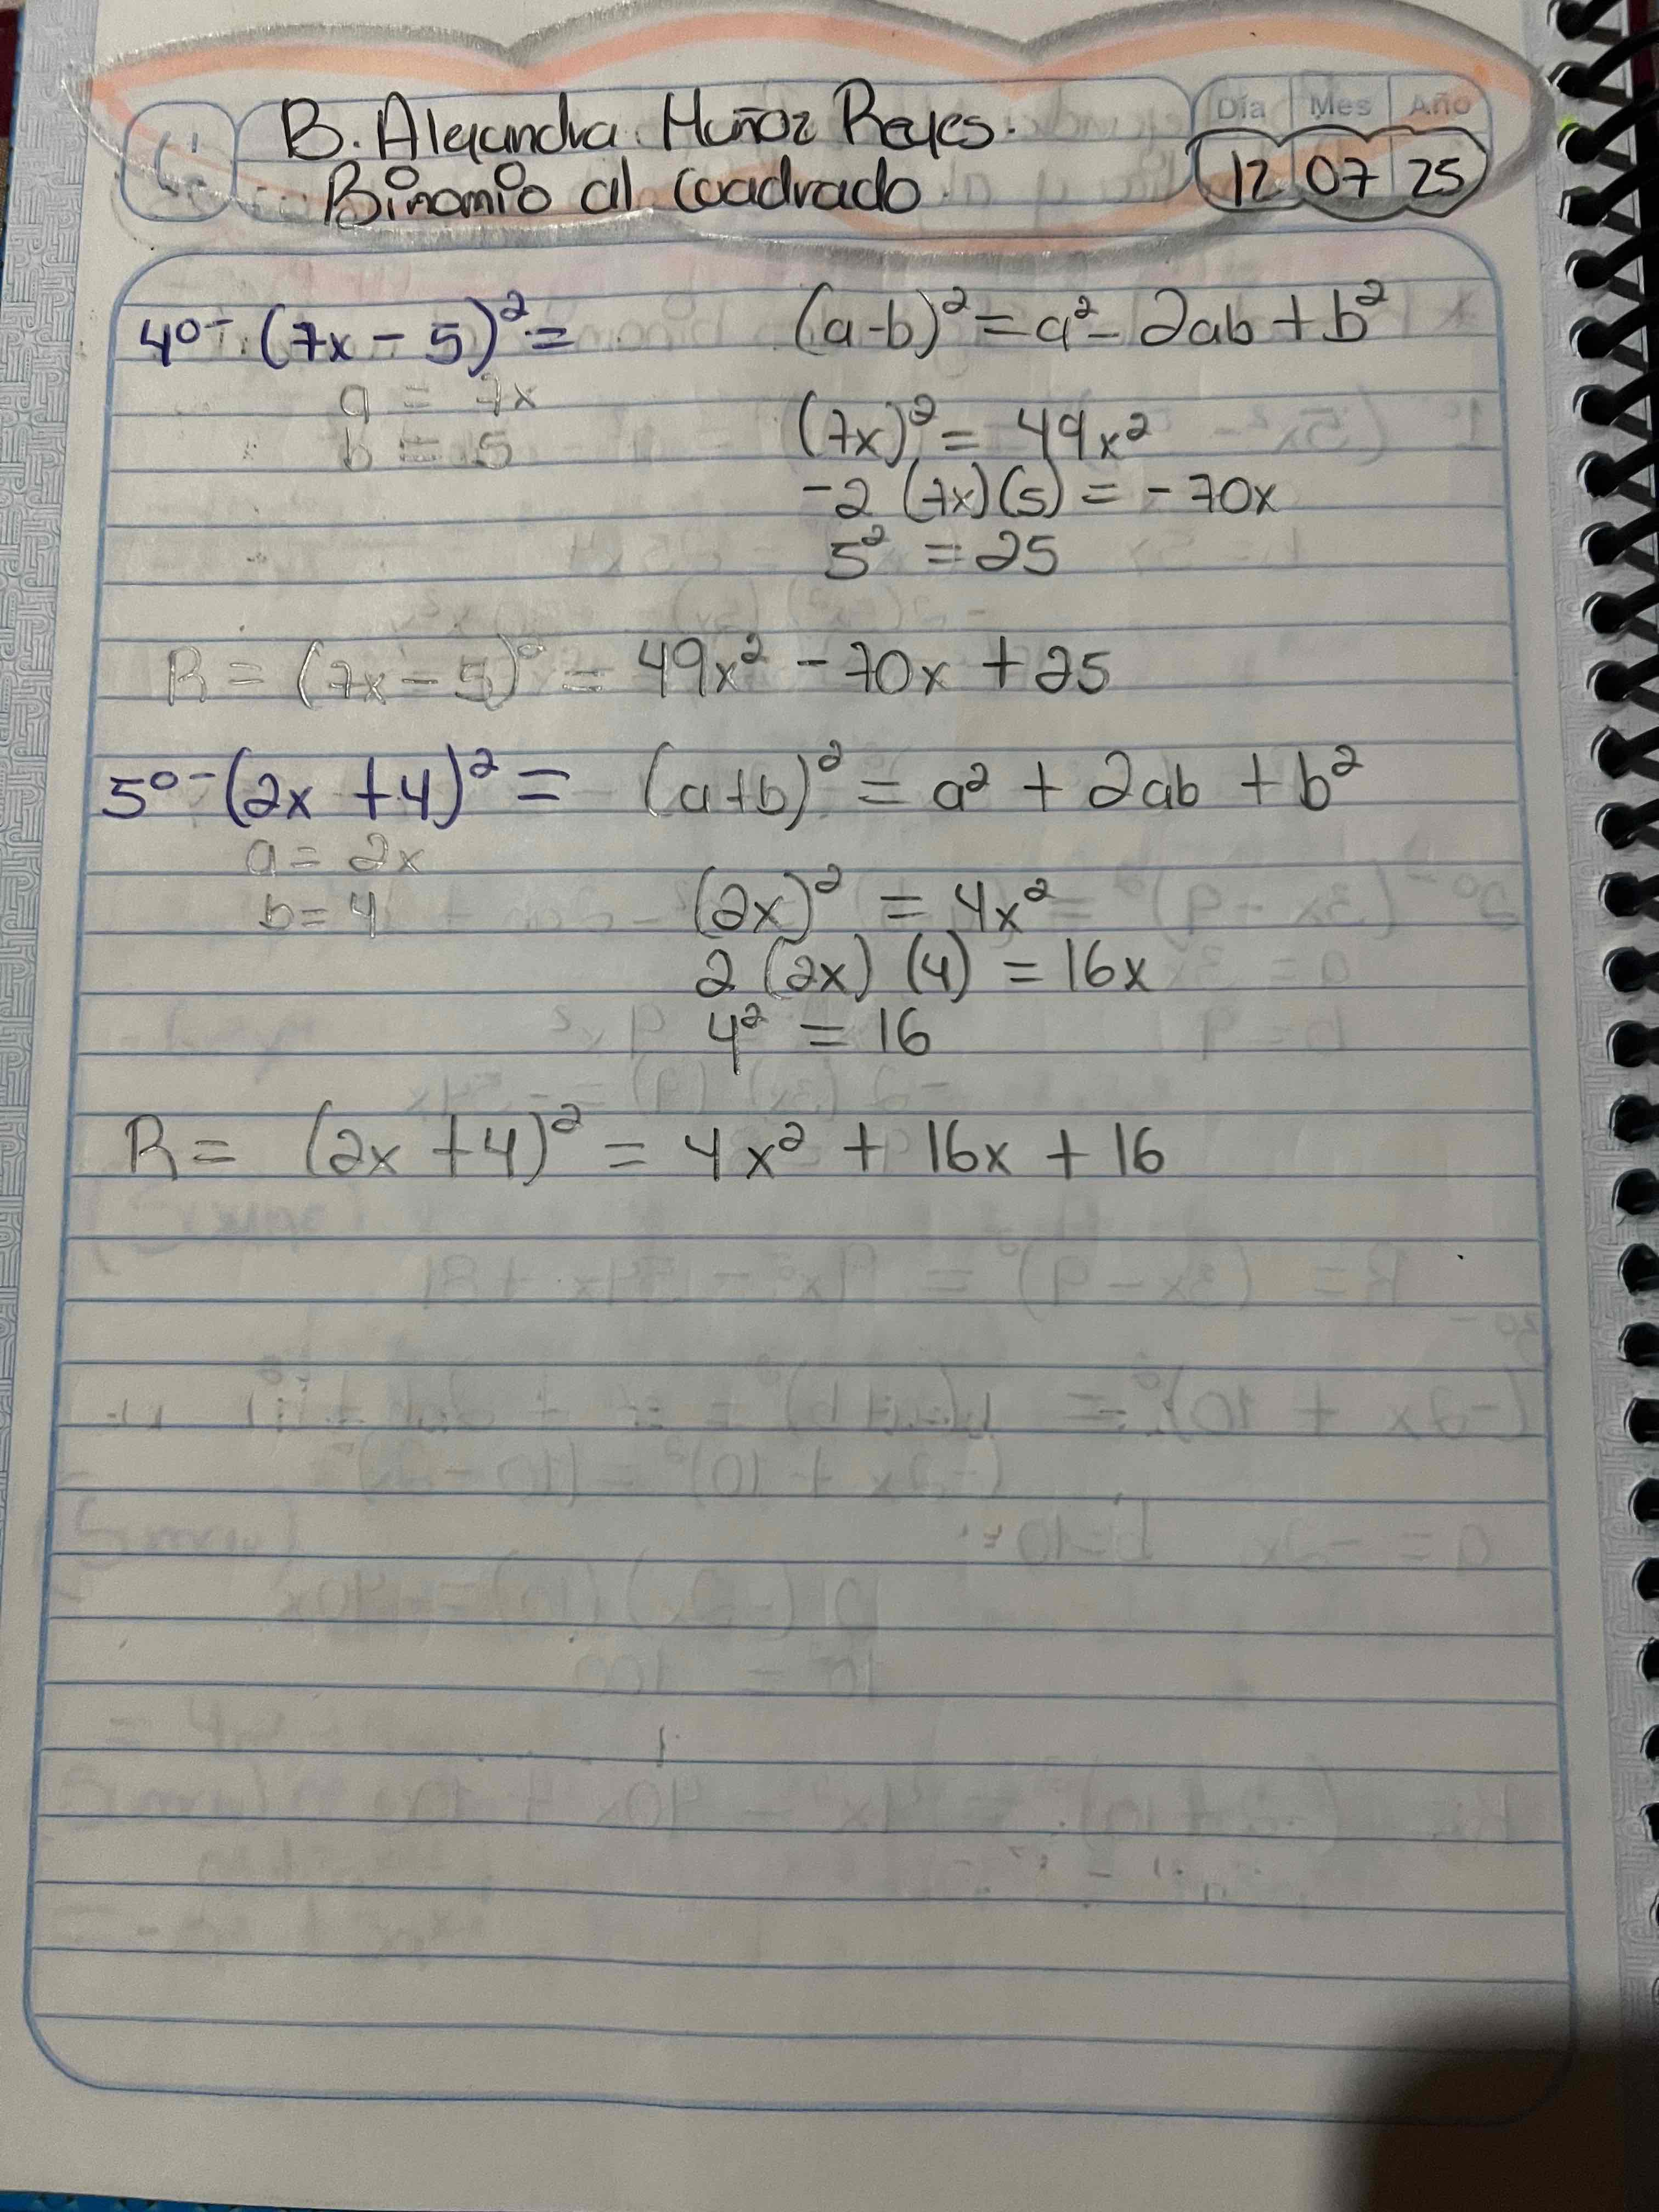 B. Alejandra Muñoz Reyes.
Binomio al cuadrado
Día Mes Año
12 07 25
4º- (7x - 5)² = (a-b)² = a² - 2ab + b²
a = 7x
b = 5
(7x)² = 49x²
-2 (7x)(5) = -70x
5² = 25
R = (7x - 5)² = 49x² - 70x + 25
5º- (2x + 4)² = (a+b)² = a² + 2ab + b²
a = 2x
b = 4
(2x)² = 4x²
2 (2x) (4) = 16x
4² = 16
R = (2x + 4)² = 4x² + 16x + 16